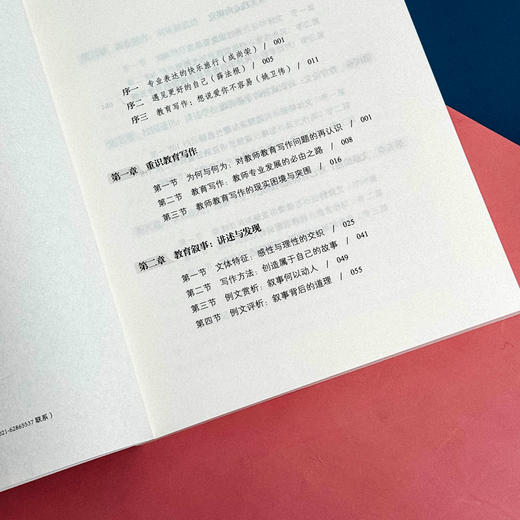 序一 专业表达的快乐旅行（成尚荣）/ 001
序二 遇见更好的自己（薛法根）/ 005
序三 教育写作：想说爱你不容易（姚卫伟）/ 011
第一章 重识教育写作
第一节 为何与何为：对教师教育写作问题的再认识 / 001
第二节 教育写作：教师专业发展的必由之路 / 008
第三节 教师教育写作的现实困境与突围 / 016
第二章 教育叙事：讲述与发现
第一节 文体特征：感性与理性的交织 / 025
第二节 写作方法：创造属于自己的故事 / 041
第三节 例文赏析：叙事何以动人 / 049
第四节 例文评析：叙事背后的道理 / 055
021-62865537 联系）